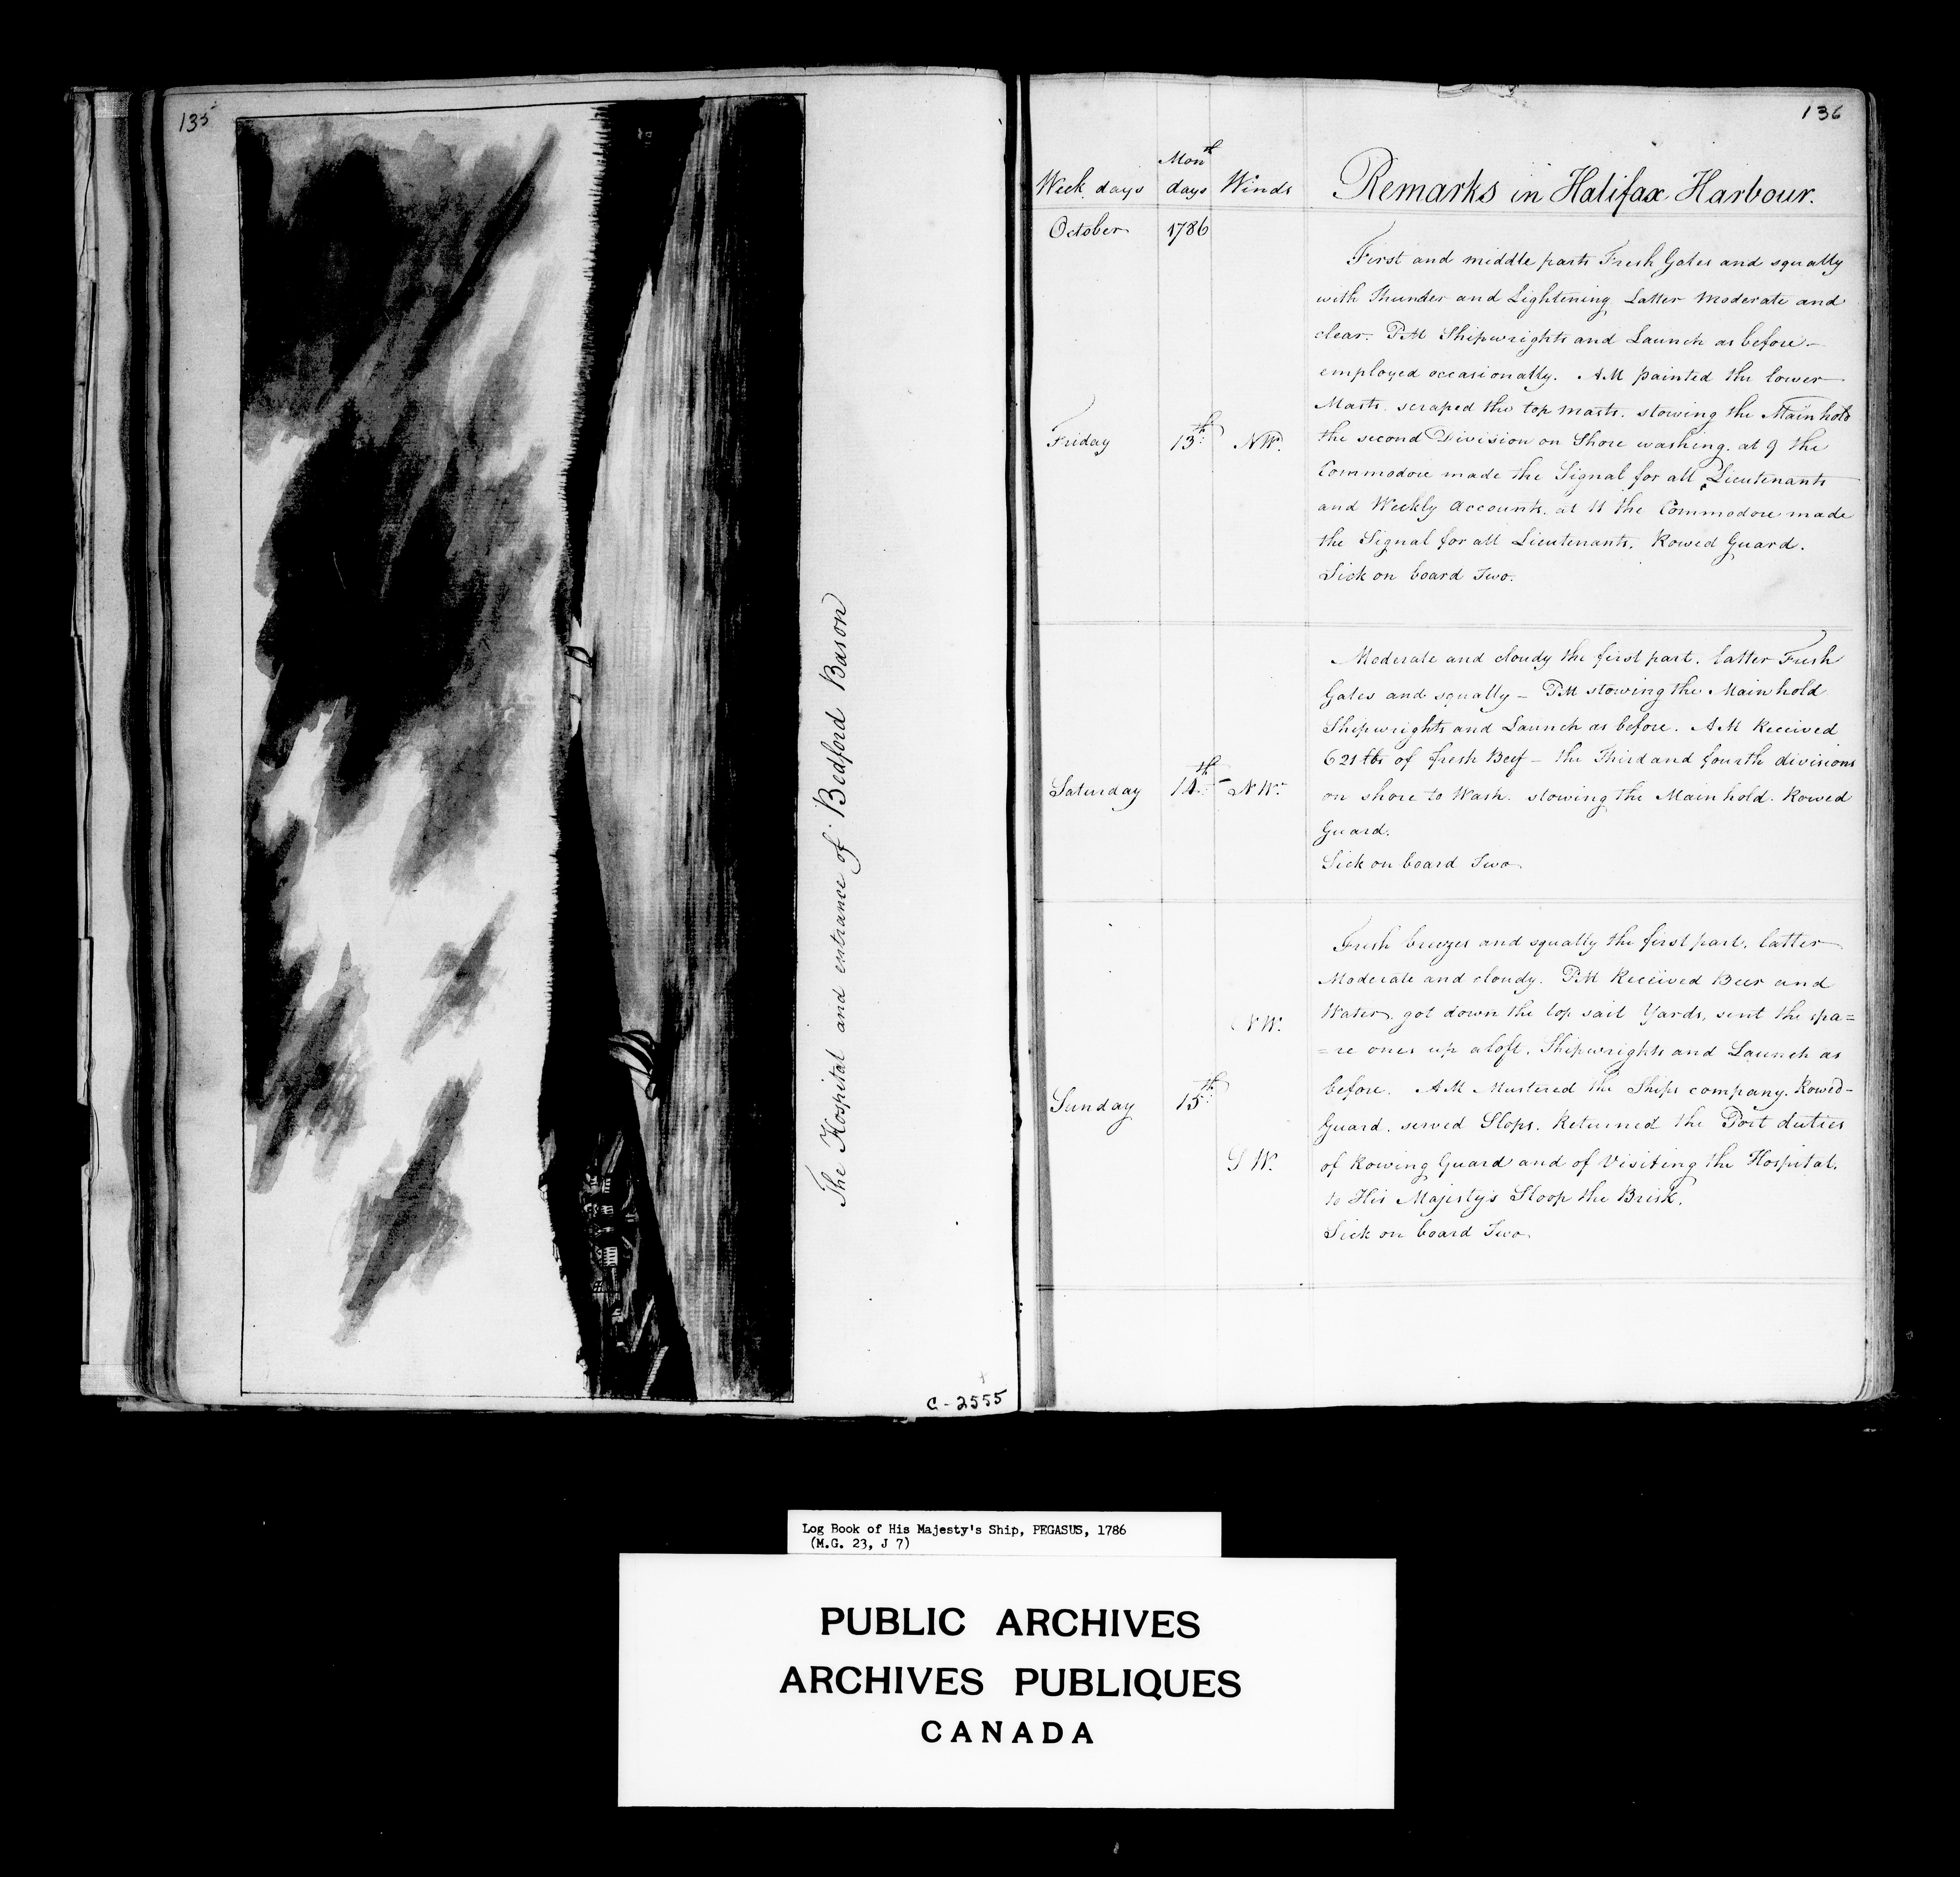 135
The Hospital and entrance of Bedford Bason
C-2555
136
Week days Mon.th days Winds Remarks in Halifax Harbour.
October 1786
First and middle parts Fresh Gales and squally
with Thunder and Lightening Latter Moderate and
clear. PM Shipwrights and Launch as before –
employed occasionally. AM painted the lower
Masts. scraped the top masts. stowing the Main hold
Friday 13th NW.
the second Division on Shore washing. at 9 the
Commodore made the Signal for all Lieutenants
and Weekly Accounts. at 11 the Commodore made
the Signal for all Lieutenants. Rowed Guard.
Sick on board Two.
Moderate and cloudy the first part. latter Fresh
Gales and squally – PM stowing the Main hold
Shipwrights and Launch as before. AM Received
621 lbs of fresh Beef – the Third and fourth divisions
Saturday 14th NW.
on shore to Wash. stowing the Main hold. Rowed
Guard.
Sick on board Two
Fresh breezes and squally the first part. latter
Moderate and cloudy. PM Received Beer and
NW.
Water, got down the top sail Yards, sent the spa=
=re ones up aloft. Shipwrights and Launch as
Sunday 15th
before. AM Mustered the Ships company. Rowed–
Guard. served Slops. Returned the Port duties
SW.
of Rowing Guard and of Visiting the Hospital.
to His Majesty's Sloop the Brisk.
Sick on board Two
Log Book of His Majesty's Ship, PEGASUS, 1786
(M.G. 23, J 7)
PUBLIC ARCHIVES
ARCHIVES PUBLIQUES
CANADA